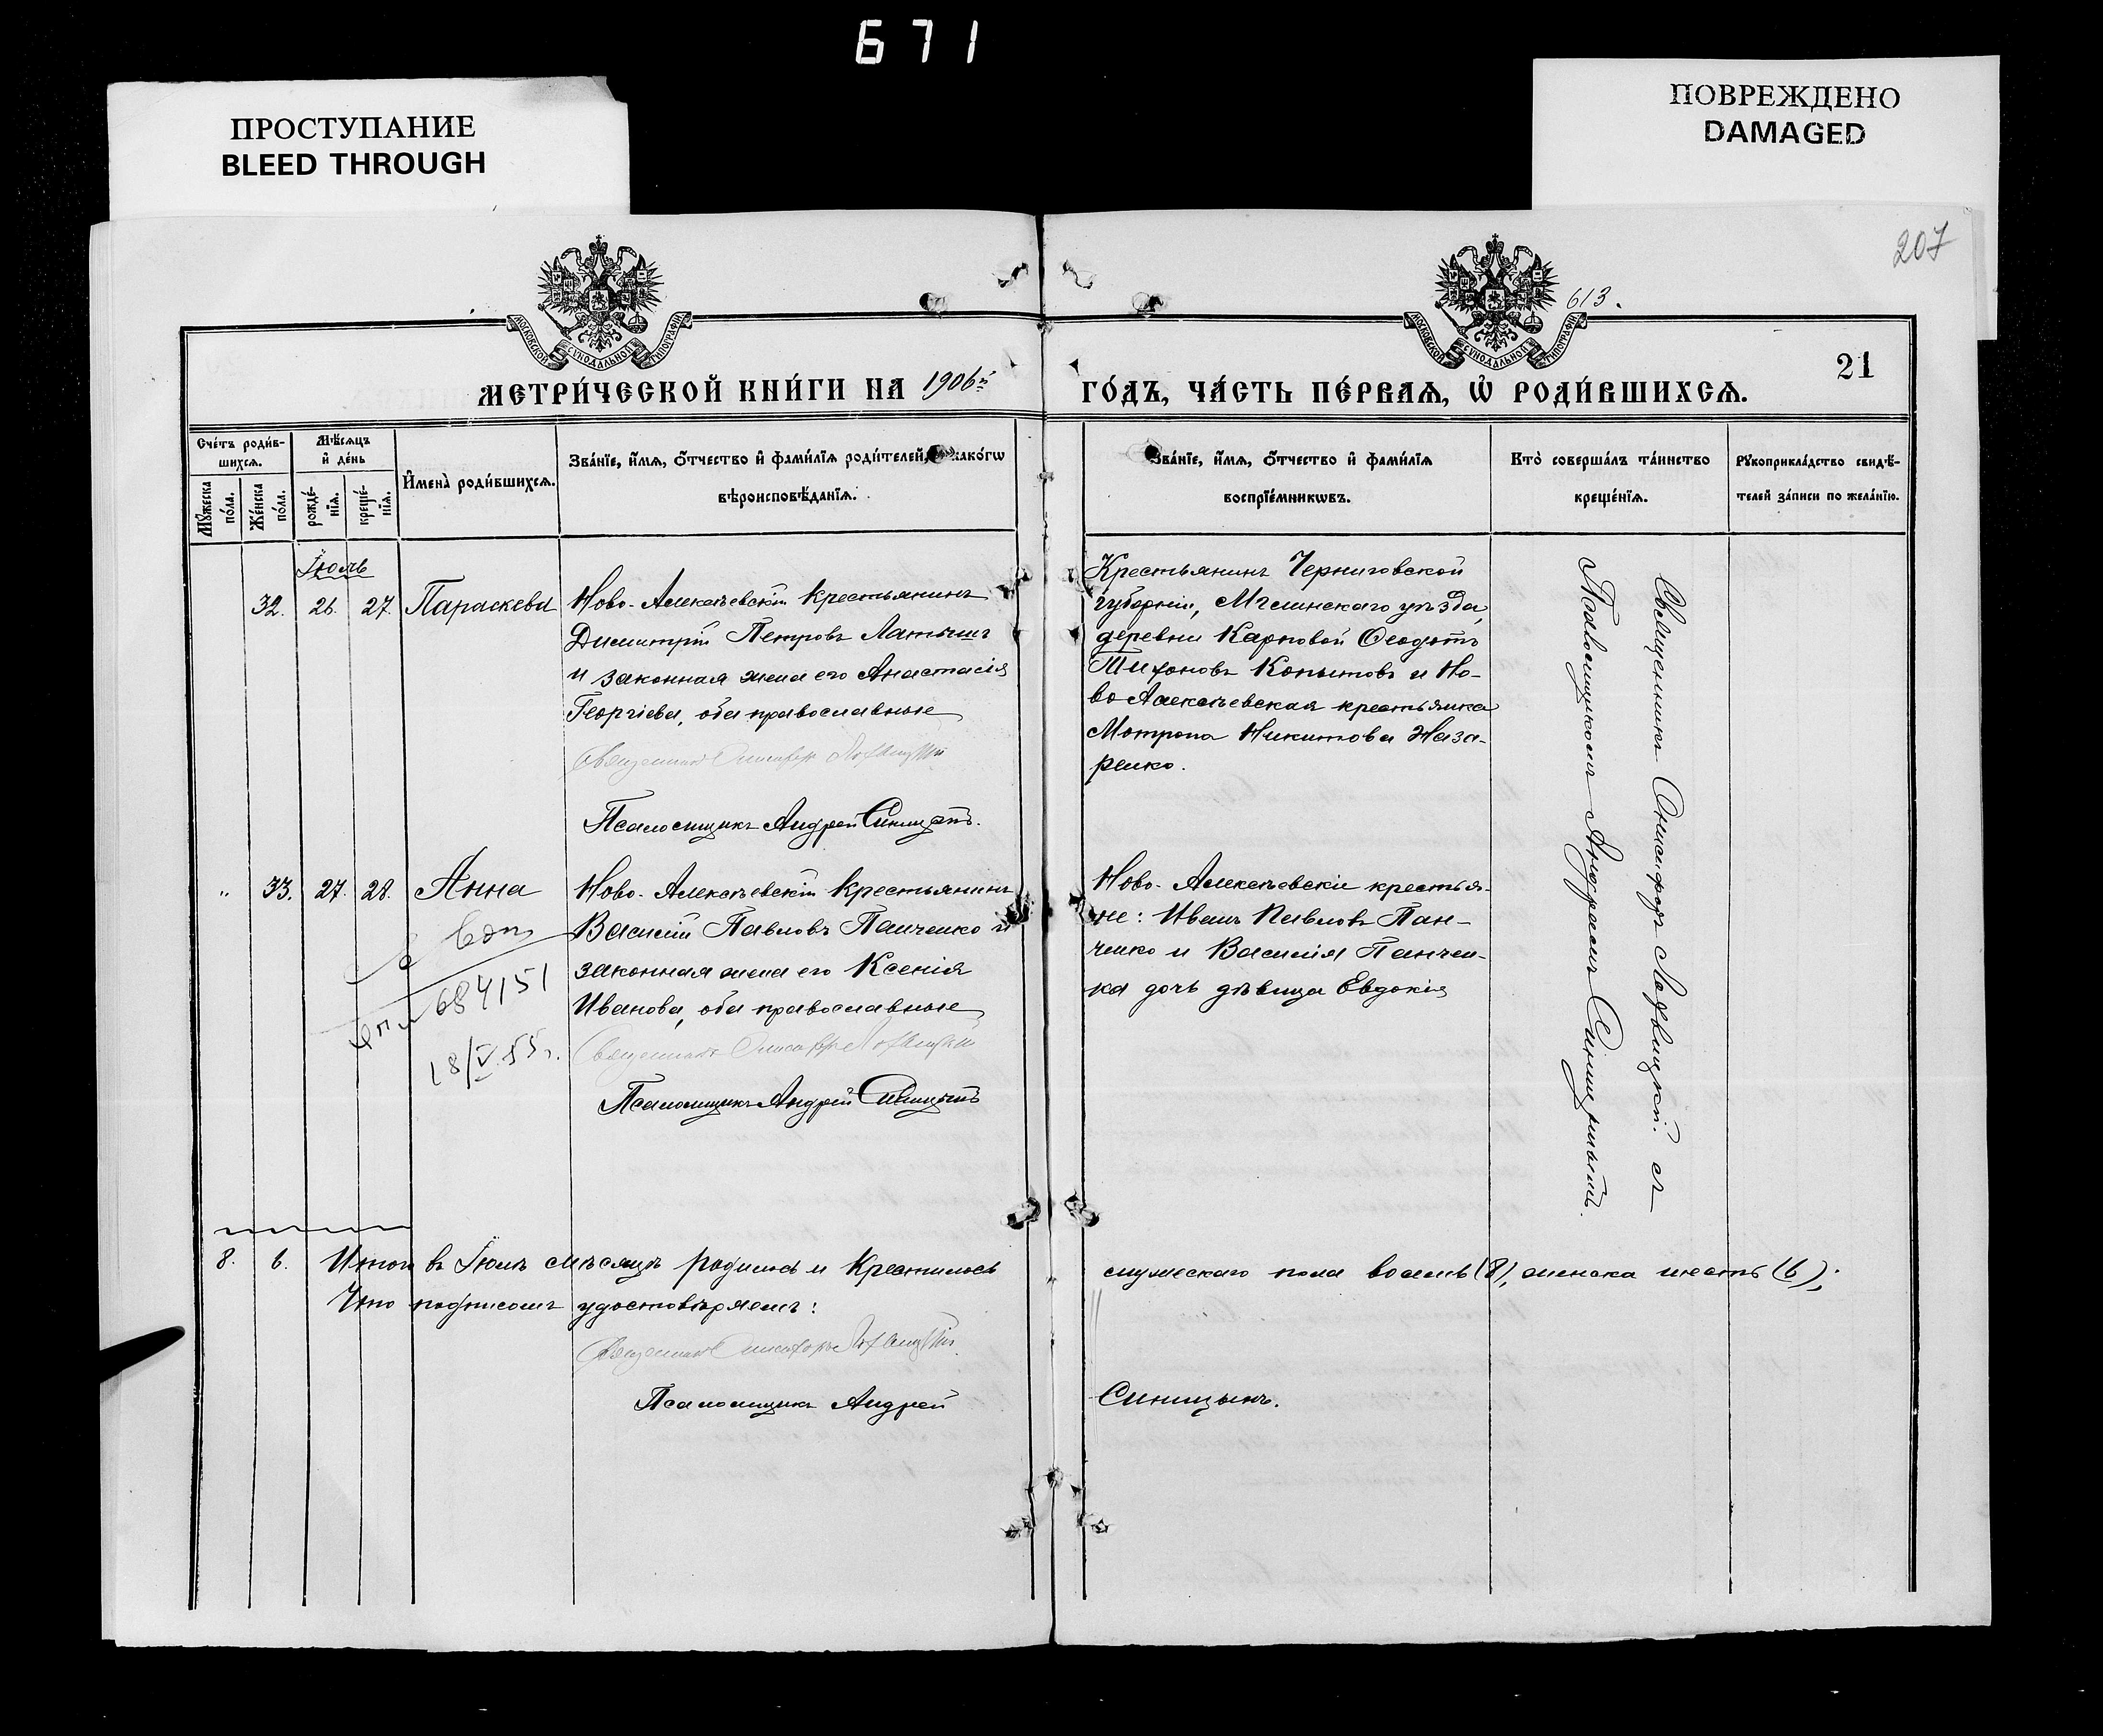 671
ПРОСТУПАНИЕ
BLEED THROUGH
ПОВРЕЖДЕНО
DAMAGED
207
613.
МОСКОВСКОЙ СѴНОДАЛЬНОЙ ТИПОГРАФІИ
МОСКОВСКОЙ СѴНОДАЛЬНОЙ ТИПОГРАФІИ
21
МЕТРИ́ЧЕСКОЙ КНИ́ГИ НА 1906й
ГО́ДЪ, ЧА́СТЬ ПЕ́РВАѦ, Ѡ҆ РОДИ́ВШИХСѦ.
Сче́тъ роди́в-
шихсѧ.
Мꙋ́жеска по́ла.
Же́нска по́ла.
Мѣ́сѧцъ
и҆ де́нь
рожде́-
нїѧ.
креще́-
нїѧ.
И҆мена̀ роди́вшихсѧ.
Зва́нїе, и҆́мѧ, ѻ҆́тчество и҆ фами́лїѧ роди́телей, како́гѡ
вѣроисповѣ́данїѧ.
Зва́нїе, и҆́мѧ, ѻ҆́тчество и҆ фами́лїѧ
воспрїе́мникѡвъ.
Кто̀ соверша́лъ та́инство
креще́нїѧ.
Рꙋкоприкла́дство свидѣ́-
телей за́писи по жела́нїю.
Іюль
32. 26. 27. Параскева
Ново-Алексѣевскій крестьянинъ
Димитрій Петровъ Латышъ
и законная жена его Анастасія
Георгіева, оба православные
Священникъ
Псаломщикъ Андрей Синицынъ.
Крестьянинъ Черниговской
губерніи, Мглинскаго уѣзда,
деревни Карповой Ѳеодотъ
Тихоновъ Копытовъ и Но-
во Алексѣевская крестьянка
Мотрона Никитова Наза-
ренко.
Священникъ Онисифоръ Лохвицкій съ
Псаломщикомъ Андреемъ Синицынымъ.
" 33. 27. 28. Анна
684151
18/V 55г.
Ново-Алексѣевскій крестьянинъ
Василій Павловъ Панченко и
законная жена его Ксенія
Иванова, оба православные
Священникъ
Псаломщикъ Андрей Синицынъ
Ново-Алексѣевскіе крестья-
не: Иванъ Павловъ Пан-
ченко и Василія Панчен-
ка дочь дѣвица Евдокія
8. 6. Итого въ Іюлѣ мѣсяцѣ родилось и крестилось
мужескаго пола восемь (8), женска шесть (6);
Что подписомъ удостовѣряемъ:
Священникъ
Псаломщикъ Андрей
Синицынъ.